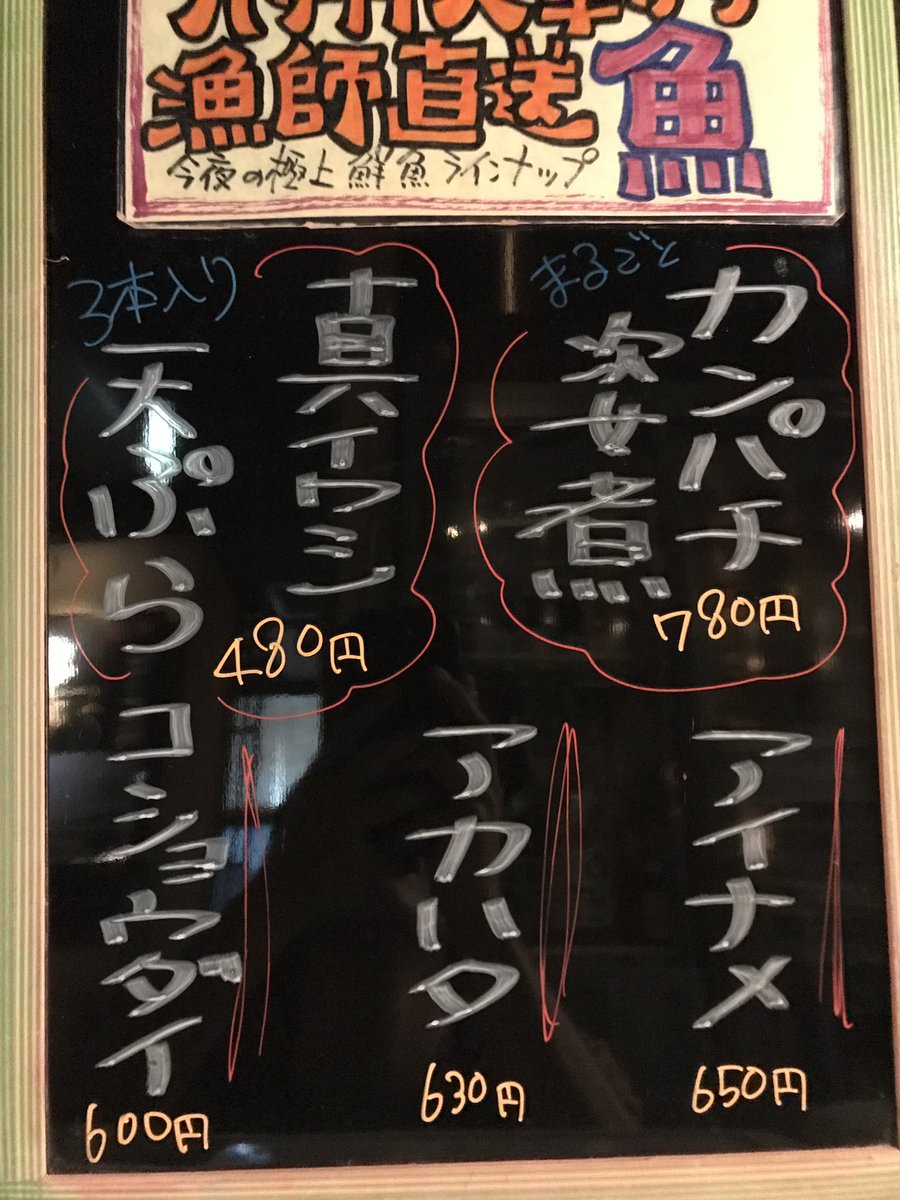 漁師直送
魚
今夜の極上鮮魚ラインナップ
カンパチ
まるごと
姿煮
780円
真イワシ
3本入り
天ぷら
480円
アイナメ
650円
アカハタ
630円
コショウダイ
600円